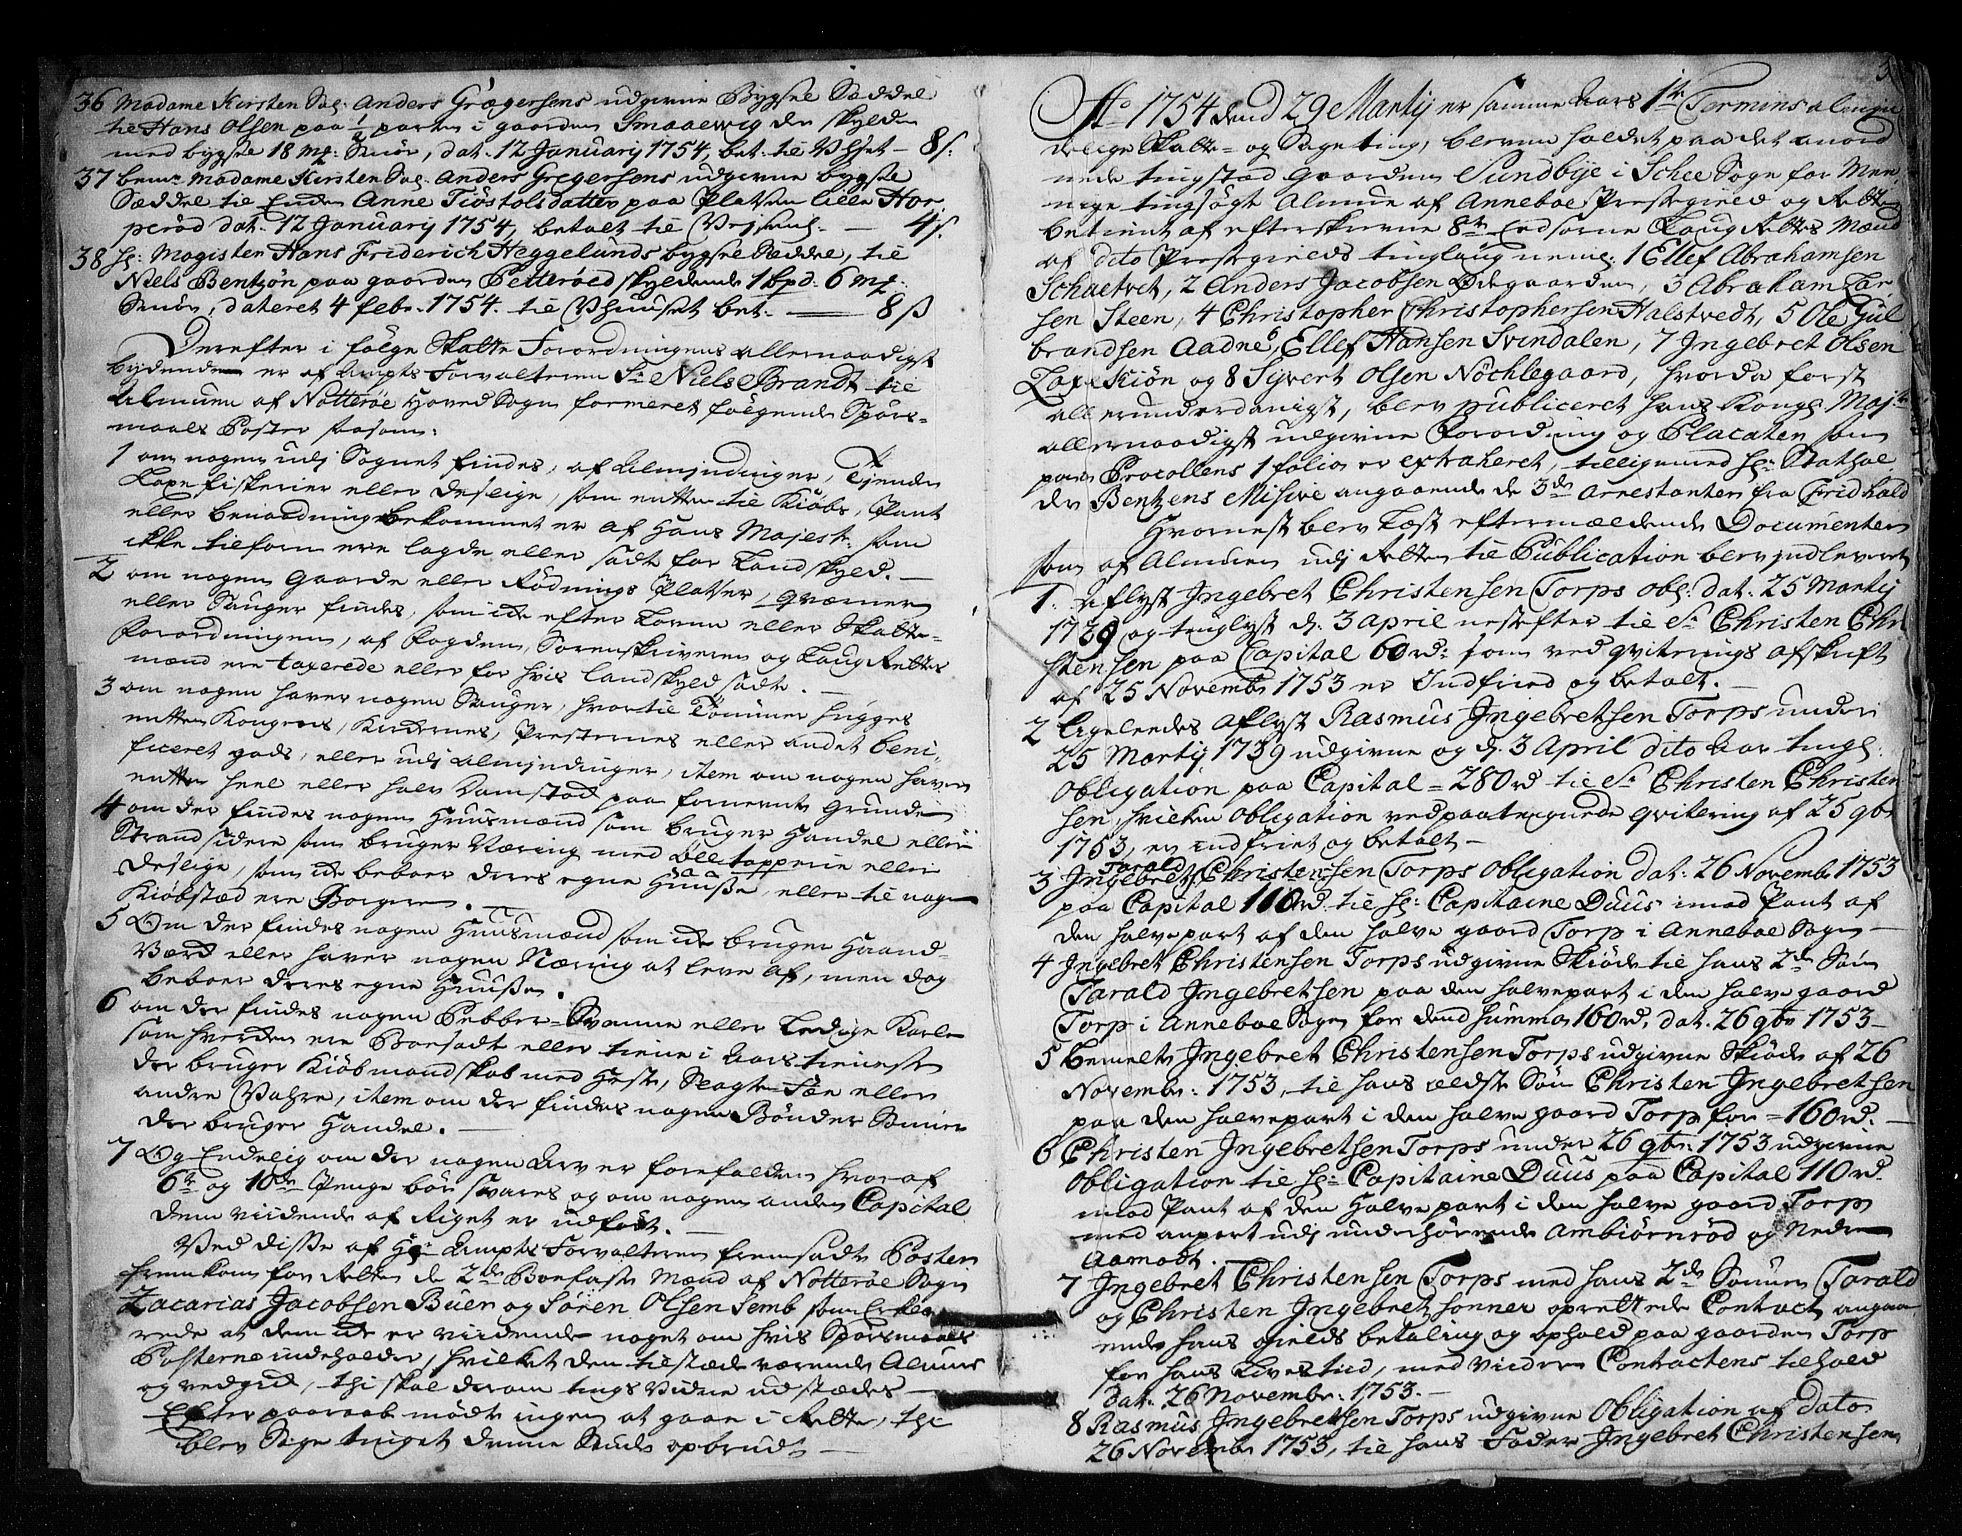 36 Madame Kirsten Sal: Anders Grægersens udgivne Bygsel Seddel
til Hans Olsen paa 1/2 parten i gaarden Smaaewig der skylder
med bygsel 18 mk: Smör, dat: 12 Januarij 1754, bet: til Vhset – 8 s:
37 bem:te Madame Kirsten Sal: Anders Gregersens udgivne bygsle
Seddel til Enken Anne Tiöstolsdatter paa Platsen lille Hor
peröd dat: 12 Januarij 1754, betalt til — 4 s.
38 Hr: Magisten Hans Friderich Heggelunds bygsel Seddel, til
Niels Bentzön paa gaarden Petteröed skyldende 1 bpd. 6 mk:
Smör, dateret 4 febr: 1754. til Vhuuset bet: — 8 ß
Derefter i fölge Skatte Forordningens allernaadigst
bydende er af Ampts Forvalteren Sr Niels Brandt til
Almuen af Nötteröe Hoved Sogn formeret fölgende Spörs-
maals Poster saasom:
1 om nogen udj Sognet findes, af Almindinger, Tjender
Laxe fiskerier eller deslige, som enten til Kiöbs, Pant
eller benaadning bekommet er af Hans Majest: som
ikke tilforn ere lagde eller sadt for Landskyld. —
2 om nogen Gaarde eller Rödnings Platser, Qværner
eller Sauger findes, som ide efter Loven eller Skatte-
Forordningen, af Fogden, Sorenskriveren og Laug Rettes
mænd ere taxerede eller for hvis landskyld sadt. —
3 om nogen haver nogen Sauger, hvortil Tömmer hugges
enten Kongens, Kirkernes, Presternes eller andet beni-
ficeret gods, eller udj Almindinger, item om nogen haver
enten heel eller halv Damstod paa fornevnte Grunde
4 om der findes nogen Huusmænd som bruger Handel eller
Strandsidere som bruger Næring med öll tapperie eller
deslige, som ide beboer deres egne Huuße, eller til nogen
Kiöbstæd ere Borgere. —
5 Om der findes nogen Huusmænd som ide bruger Haand-
Værck eller haver nogen Næring at leve af, men dog
beboer deres egne Huuße.
6 om der findes nogen Pebber-Svenne eller Ledige Karle
som hverken ere Boesadt eller tiene i Aars tieniste
der bruger Kiöbmandskab med Heste, Slagte-Fæe eller
andre Vahre, item om der findes nogen Bönder Sönner
der bruger Handel. —
7 Og Endelig om der nogen Arv er forefalden hvoraf
6te og 10de Penge bör svares og om nogen anden Capital
dem vidende af Riget er udfört. —
Ved disse af Hr: Ampts Forvalteren fremsadte Poster
fremkom for Retten de 2de Boefaste Mænd af Nötteröe Sogn
Zacarias Jacobsen Buer og Sören Olsen Semb som Erklæ-
rede at dem ide er vidende noget om hvis Spörsmaals
Posterne indeholder, hvilket den tilstædeværende Almue
og vedgik, thi skal derom tings Vidne udstædes —
Efter paaraab mödte ingen at gaae i Rette, thi
blev Sige tinget denne Stude opbrudt —
Ao 1754 dend 29 Martij er samme Aars 1te Termins almin
delige Skatte- og Sageting, bleven holdet paa det anord
nede tingstæd gaarden Sundbye i Schee Sogn for Mee-
nige tingsögt Almue af Anneboe Prestegield og Retten
betient af efterskrevne 8te Eedsorne Laug Rettes Mænd
af dito Prestegields tinglaug neml: 1 Ellef Abrahamsen
Schaetvet, 2 Anders Jacobsen Ödegaarden, 3 Abraham Lar
sen Steen, 4 Christopher Christophersen Halstvedt, 5 Ole Gul
brandsen Aadne, 6 Ellef Hansen Svindalen, 7 Ingebret Olsen
Lax Kiön og 8 Sivert Olsen Nöchlegaard, hvorda først
allerunderdanigst, blev publiceret Hans Kongl: Majts
allernaadigst udgivne Forordning og Placater som
paa Procollens 1 folio er extraheret, tilligemed Hr: Stathol
der Bentzens Misive angaaende de 3de Arrestanter fra Fridhald
Hvornest blev læst eftermeldende Documenter
som af Almuen udj Retten til Publication blev indleveret
1. Aflyst Ingebret Christensen Torps obl: dat: 25 Martij
1739 og tinglyst d: 3 April nestefter til Sr Christen Chri
stensen paa Capital 60 rd: som ved qviterings afskrift
af 25 Novembr 1753 er Indfried og betalt. —
2 ligeleedes aflyst Rasmus Ingebretsen Torps under
25 Martij 1739 udgivne og d: 3 April dito Aar tingl:
Obligation paa Capital = 280 rd til Sr Christen Christen
sen, hvilken Obligation ved paategnede qvitering af 25 9br
1753, er indfriet og betalt —
3 Ingebret Tarald Christensen Torps Obligation dat: 26 Novembr 1753
paa Capital 110 rd. til Hr: Capitaine Duus imod Pant af
den halve part af den halve gaard Torp i Anneboe Sogn —
4 Ingebret Christensen Torps udgivne Skiöde til hans 2de Sön
Tarald Ingebretsen paa den halvepart i den halve gaard
Torp i Anneboe Sogn for dend summa 160 rd, dat: 26 9br 1753 —
5 bemelte Ingebret Christensen Torps udgivne Skiöde af 26
Novembr: 1753, til hans eldste Sön Christen Ingebretsen
paa den halvepart i den halve gaard Torp for = 160 rd: —
6 Christen Ingebretsen Torps under 26 9br: 1753 udgivne
Obligation til Hr: Capitaine Duus paa Capital 110 rd.
imod Pant af den Halvepart i den halve gaard Torp
med anpart udj underhörende Ambiörnröd og Nedre
Aamodt.
7 Ingebret Christensen Torps med hans 2de Sönner Tarald
og Christen Ingebretsönner oprettede Contract angaa
ende hans gields betaling og ophold paa gaarden Torp
for hans Livestiid, med videre Contractens tilhold
dat: 26 Novembr: 1753. —
8 Rasmus Ingebretsen Torps udgivne Obligation af dato
26 Novembr 1753, til hans Fader Ingebret Christensen